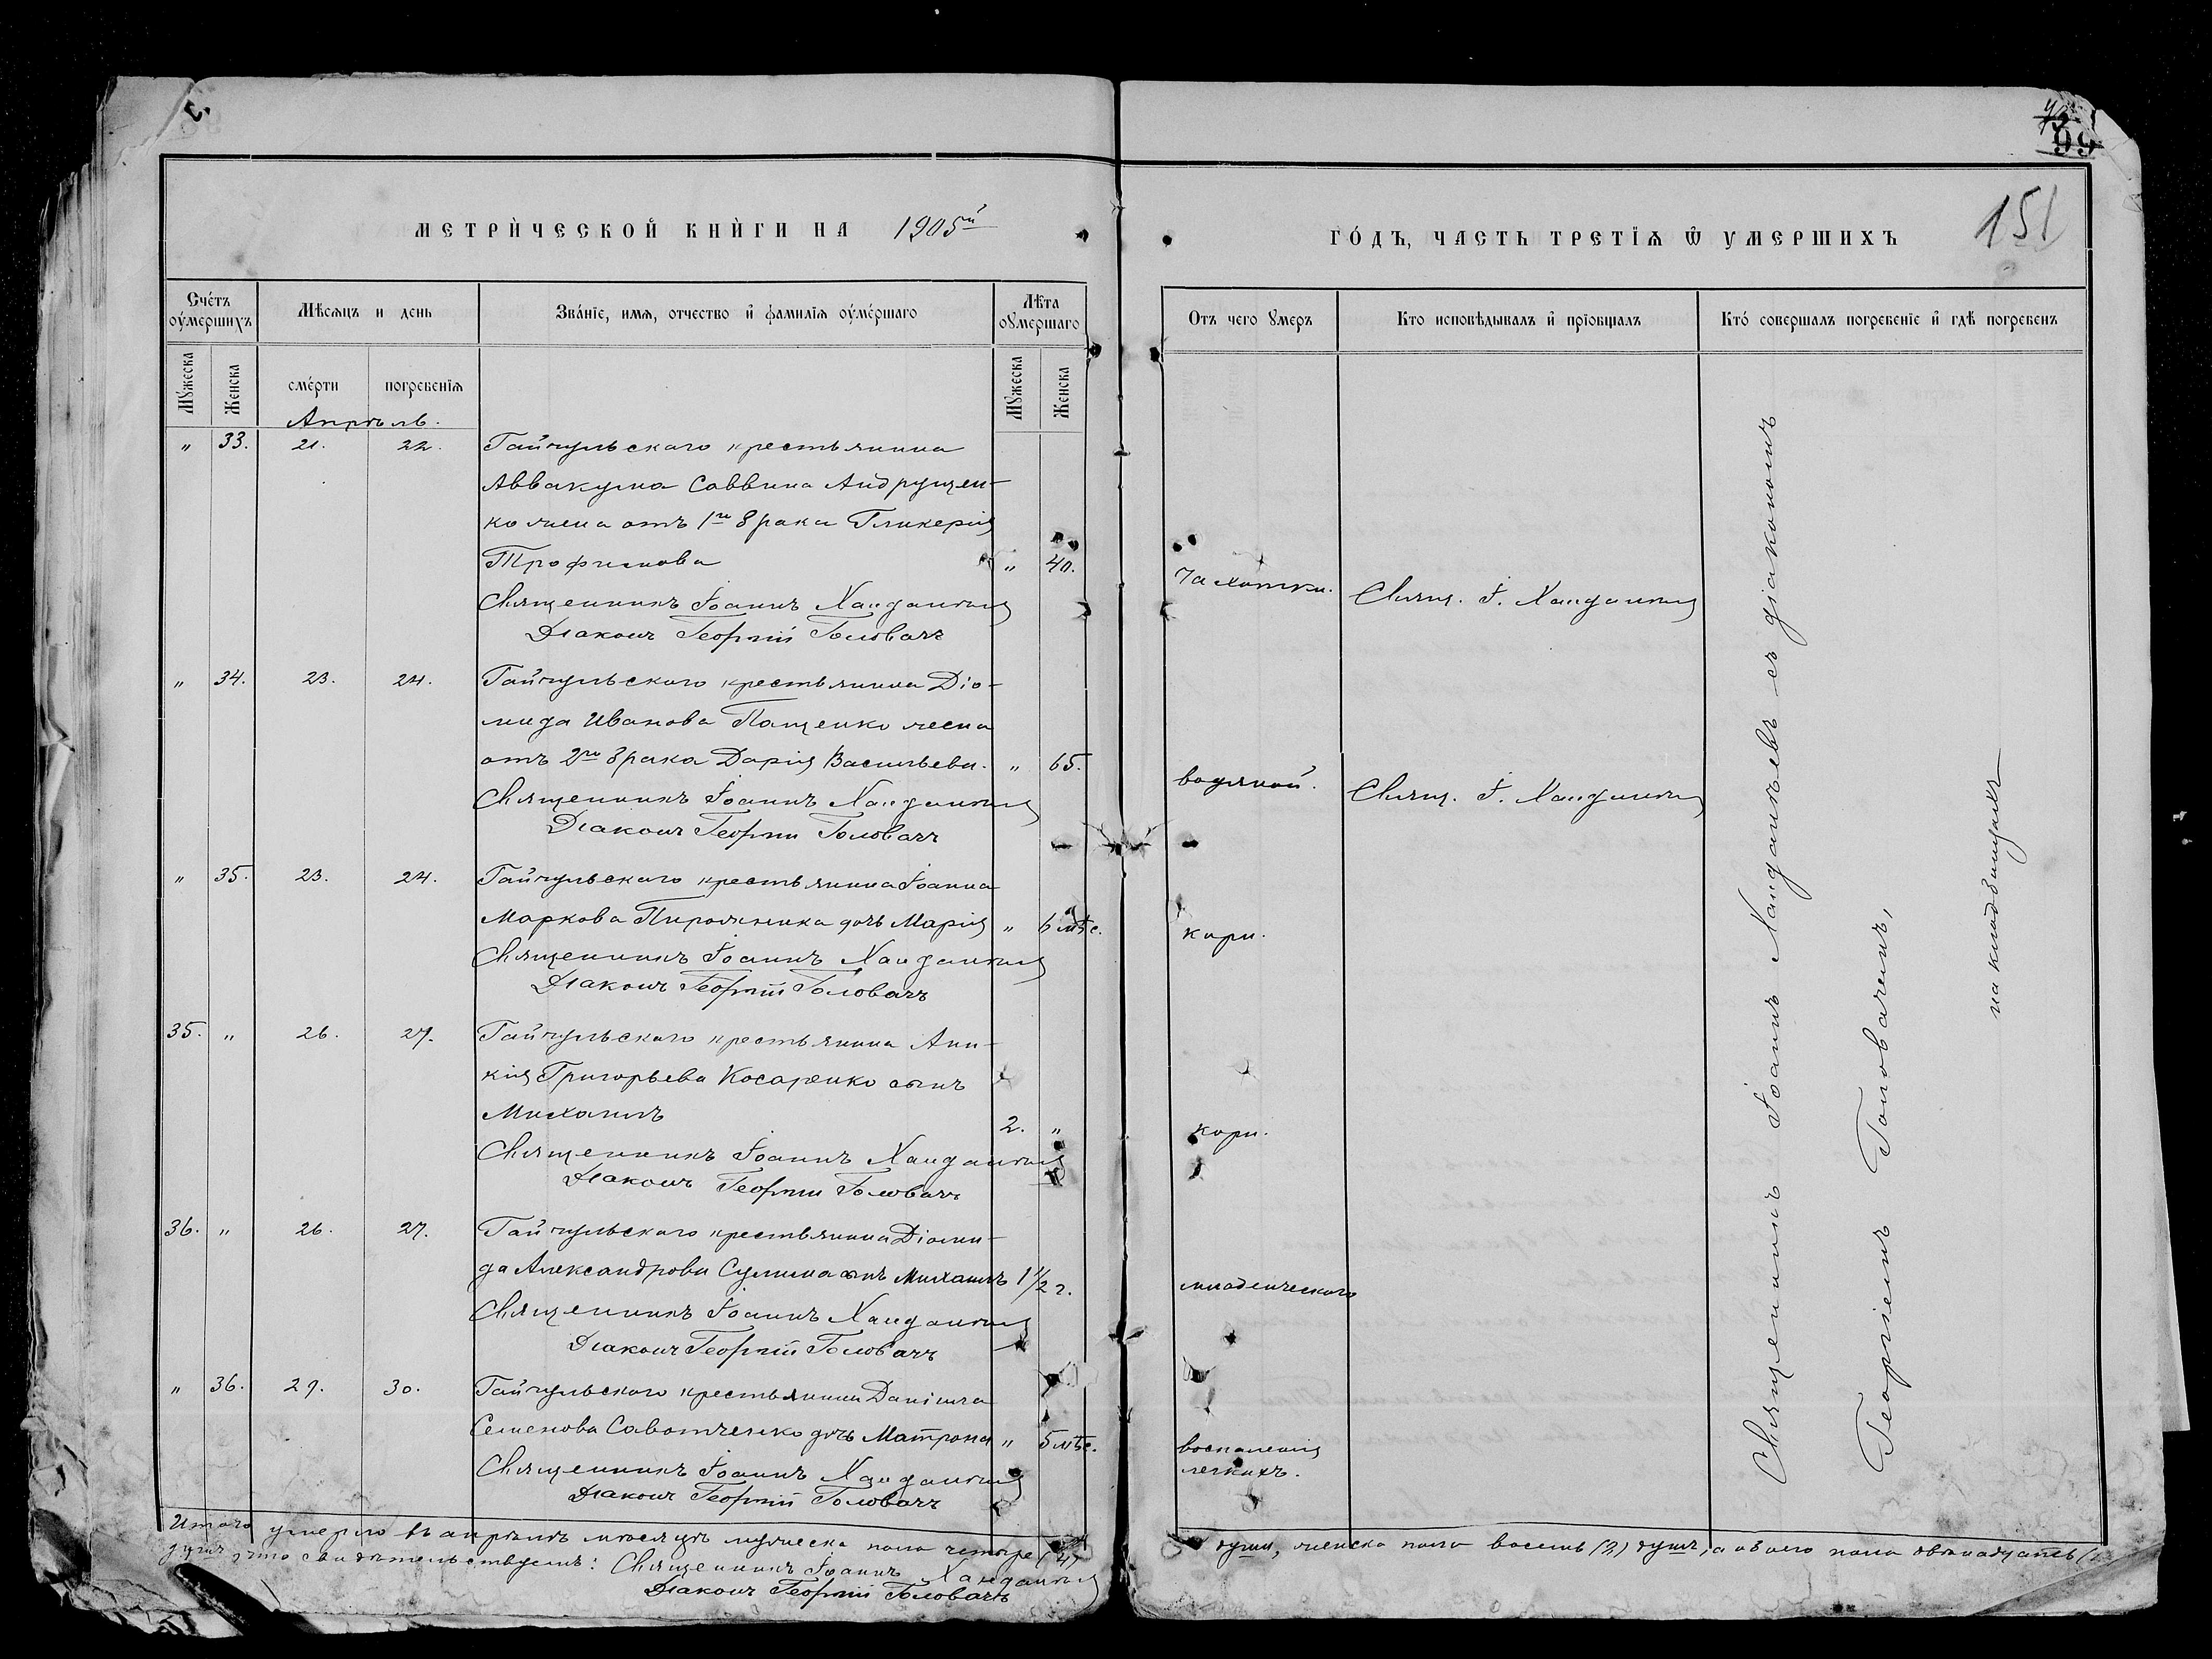 99
151
МЕТРИЧЕСКОЙ КНИГИ НА 1905й
ГОДЪ, ЧАСТЬ ТРЕТІЯ Ѿ УМЕРШИХЪ
Счетъ умершихъ
Мѣсяцъ и день
Званіе, имя, отчество и фамилія умершаго
Лѣта умершаго
Отъ чего умеръ
Кто исповѣдывалъ и пріобщалъ
Кто совершалъ погребеніе и гдѣ погребенъ
Мужеска
Женска
смерти
погребенія
Мужеска
Женска
Апрѣль.
" 33. 21. 22. Гайчульскаго крестьянина
Аввакума Саввина Андрущен-
ко жена отъ 1го брака Гликерія
Трофимова " 40. Чахотки. Свящ. І. Хандалѣевъ
Священникъ Іоаннъ Хандалѣевъ
Діаконъ Георгій Головачъ
" 34. 23. 24. Гайчульскаго крестьянина Діо-
мида Иванова Пащенко жена
отъ 2го брака Дарія Васильева. " 65. водяной. Свящ. І. Хандалѣевъ
Священникъ Іоаннъ Хандалѣевъ
Діаконъ Георгій Головачъ
" 35. 23. 24. Гайчульскаго крестьянина Іоанна
Маркова Пирожника дочь Марія " 6 мѣс. кори.
Священникъ Іоаннъ Хандалѣевъ
Діаконъ Георгій Головачъ
35. " 26. 27. Гайчульскаго крестьянина Ани-
кія Григорьева Косаренко сынъ
Михаилъ 2. " кори.
Священникъ Іоаннъ Хандалѣевъ
Діаконъ Георгій Головачъ
36. " 26. 27. Гайчульскаго крестьянина Діоми-
да Александрова Сулима сынъ Михаилъ 1 1/2 г. младенческаго
Священникъ Іоаннъ Хандалѣевъ
Діаконъ Георгій Головачъ
" 36. 29. 30. Гайчульскаго крестьянина Даніила
Семенова Саватченко дочь Матрона " 5 мѣс. воспаленія
легкихъ.
Священникъ Іоаннъ Хандалѣевъ
Діаконъ Георгій Головачъ
Священникъ Іоаннъ Хандалѣевъ съ діакономъ
Георгіемъ Головачемъ,
на кладбищахъ
Итого умерло въ апрѣлѣ мѣсяцѣ мужеска пола четыре (4) души, женска пола восемь (8) душъ, а обоего пола двѣнадцать
душъ, что свидѣтельствуемъ: Священникъ Іоаннъ Хандалѣевъ
Діаконъ Георгій Головачъ